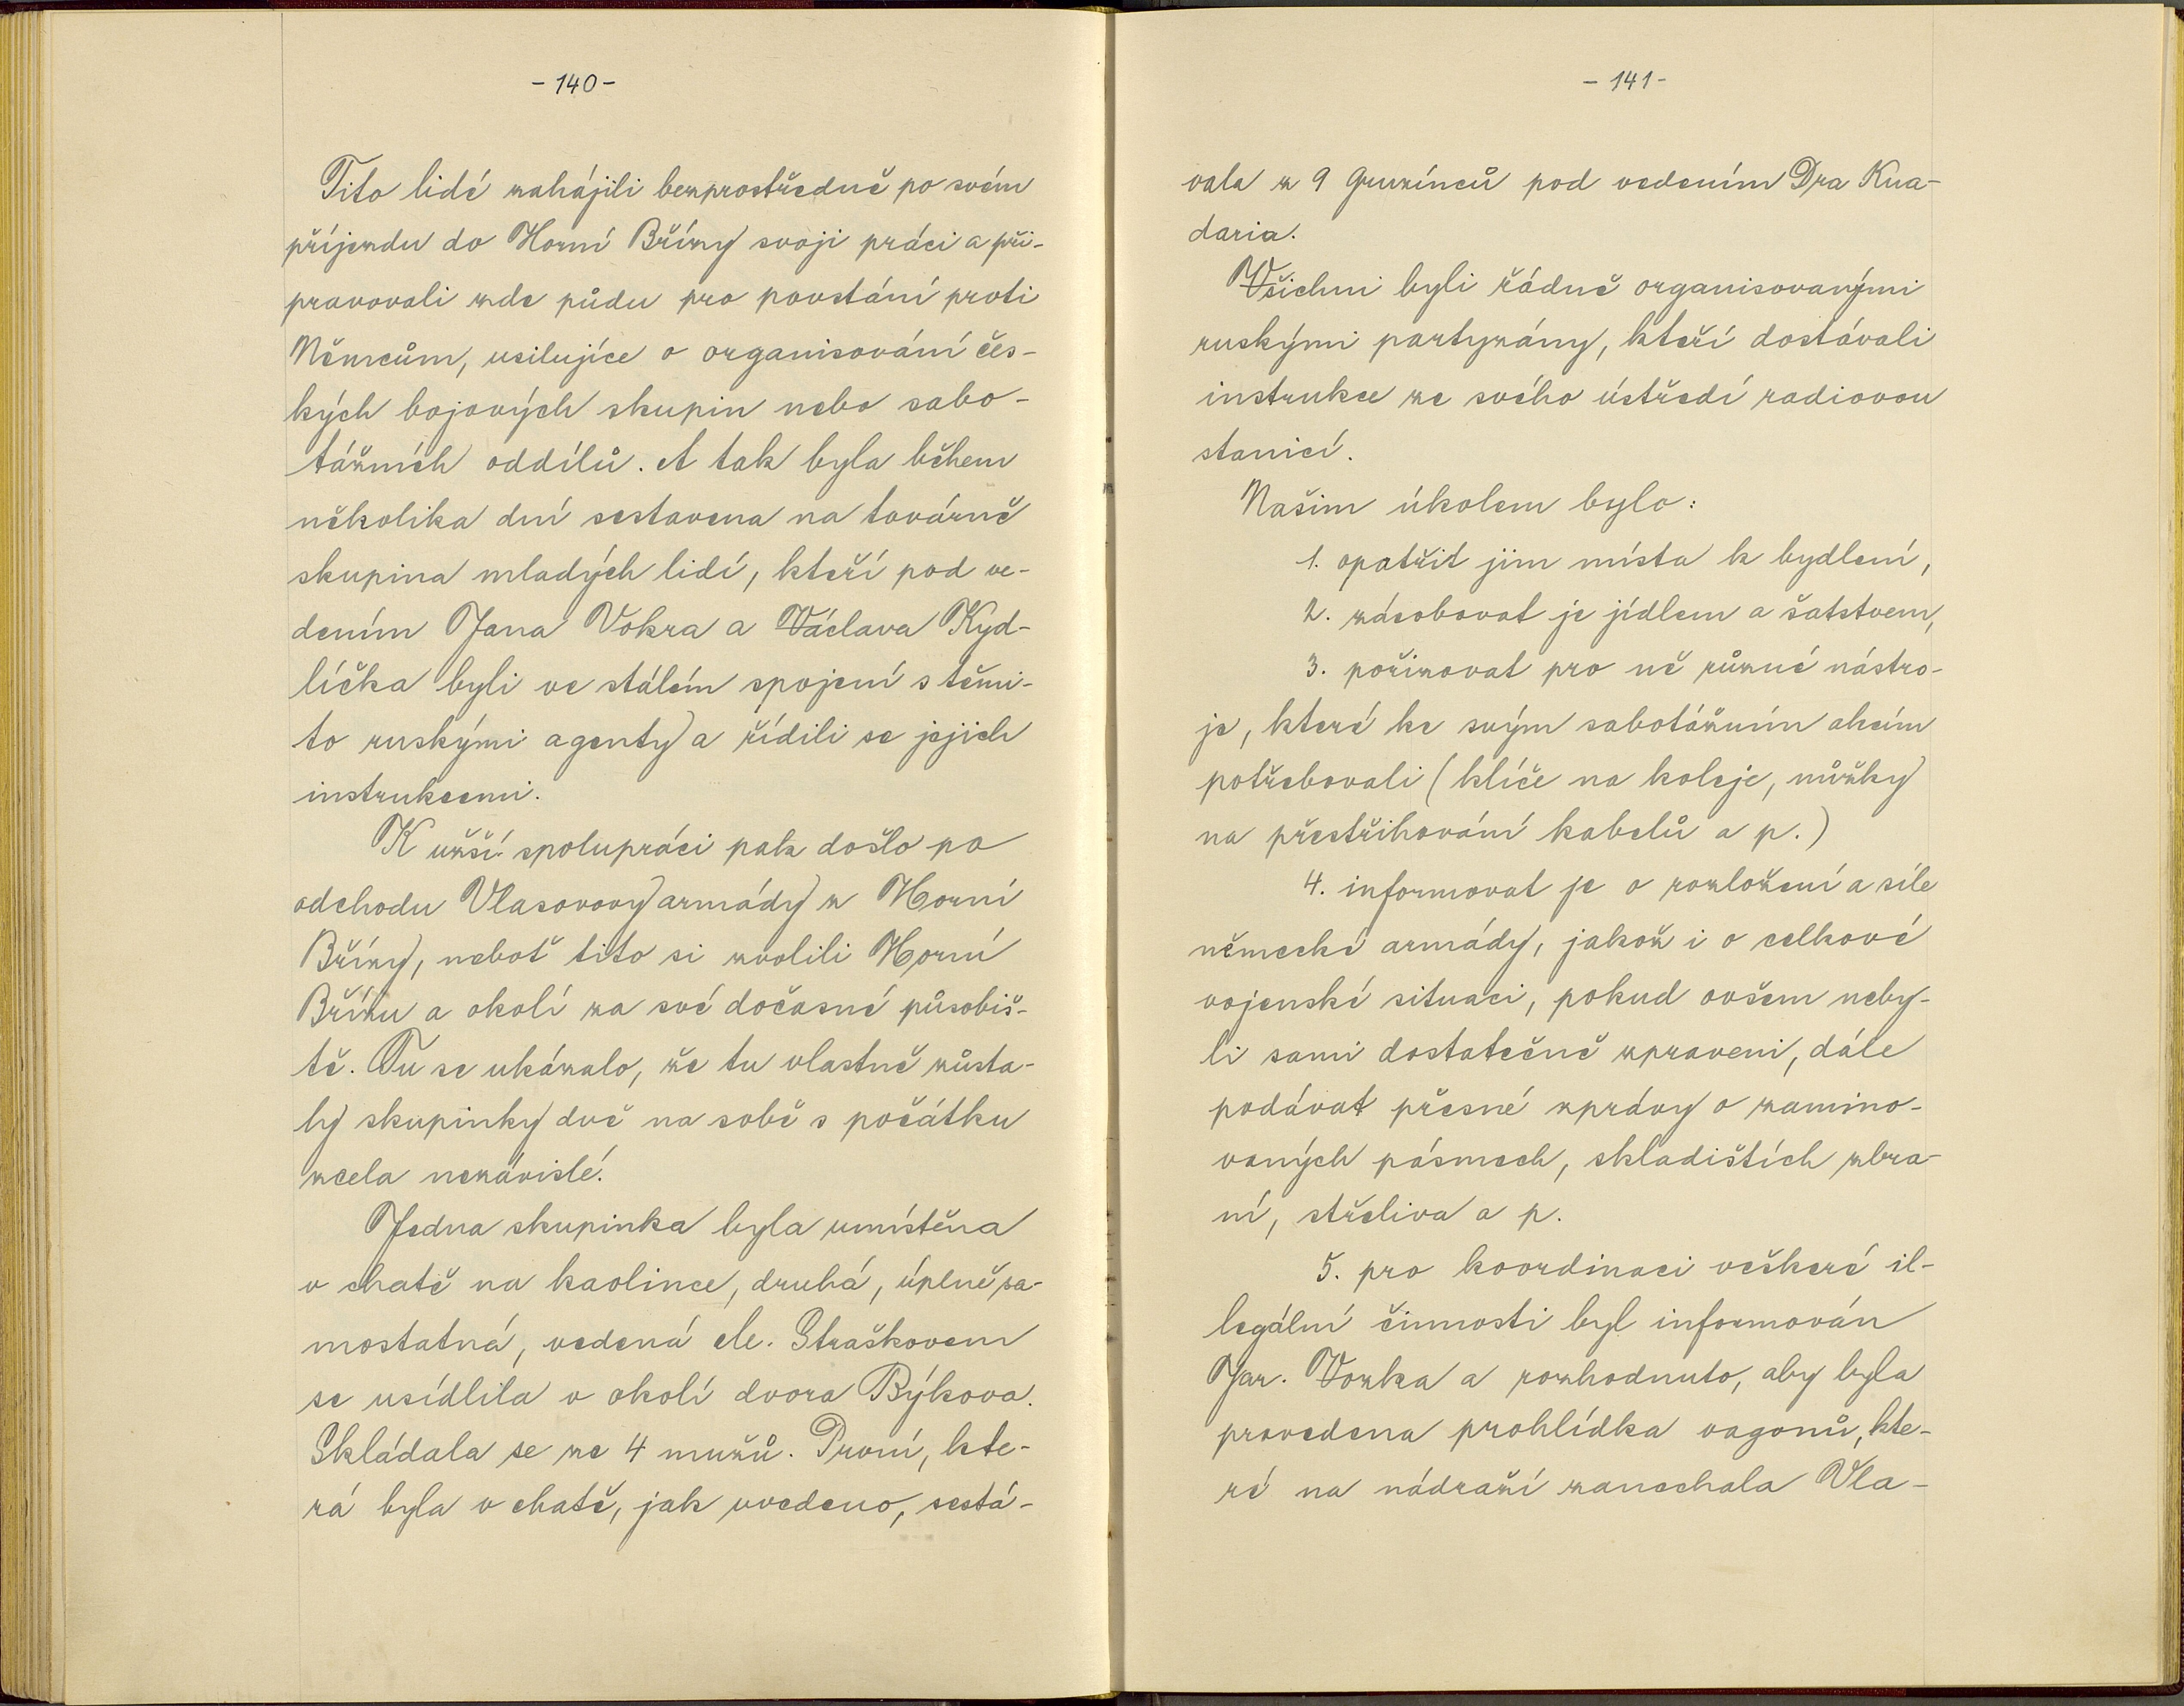 - 140 -
Tito lidé zahájili bezprostředně po svém
příjezdu do Horní Břízy svoji práci a při-
pravovali zde půdu pro povstání proti
Němcům, usilujíce o organisování čes-
kých bojových skupin nebo sabo-
tážních oddílů. A tak byla během
několika dní sestavena na továrně
skupina mladých lidí, kteří pod ve-
dením Jana Vokra a Václava Kyd-
líčka byli ve stálém spojení s těmi-
to ruskými agenty a řídili se jejich
instrukcemi.
K užší spolupráci pak došlo po
odchodu Vlasovovy armády z Horní
Břízy, neboť tito si zvolili Horní
Břízu a okolí za své dočasné působiš-
tě. Tu se ukázalo, že tu vlastně zůsta-
ly skupinky dvě na sobě s počátku
zcela nezávislé.
Jedna skupinka byla umístěna
v chatě na kaolince, druhá, úplně sa-
mostatná, vedená Al. Straškovem
se usídlila v okolí dvora Býkova.
Skládala se ze 4 mužů. První, kte-
rá byla v chatě, jak uvedeno, sestá-
- 141 -
vala z 9 Gruzínců pod vedením Dra Kua-
daria.
Všichni byli řádně organisovanými
ruskými partyzány, kteří dostávali
instrukce ze svého ústředí radiovou
stanicí.
Našim úkolem bylo:
1. opatřit jim místa k bydlení,
2. zásobovat je jídlem a šatstvem,
3. pořizovat pro ně různé nástro-
je, které ke svým sabotážním akcím
potřebovali (klíče na koleje, nůžky
na přestřihování kabelů a p.)
4. informovat je o rozložení a síle
německé armády, jakož i o celkové
vojenské situaci, pokud ovšem neby-
li sami dostatečně zpraveni, dále
podávat přesné zprávy o zamino-
vaných pásmech, skladištích zbra-
ní, střeliva a p.
5. pro koordinaci veškeré il-
legální činnosti byl informován
Jar. Vozka a rozhodnuto, aby byla
provedena prohlídka vagonů, kte-
ré na nádraží zanechala Vla-